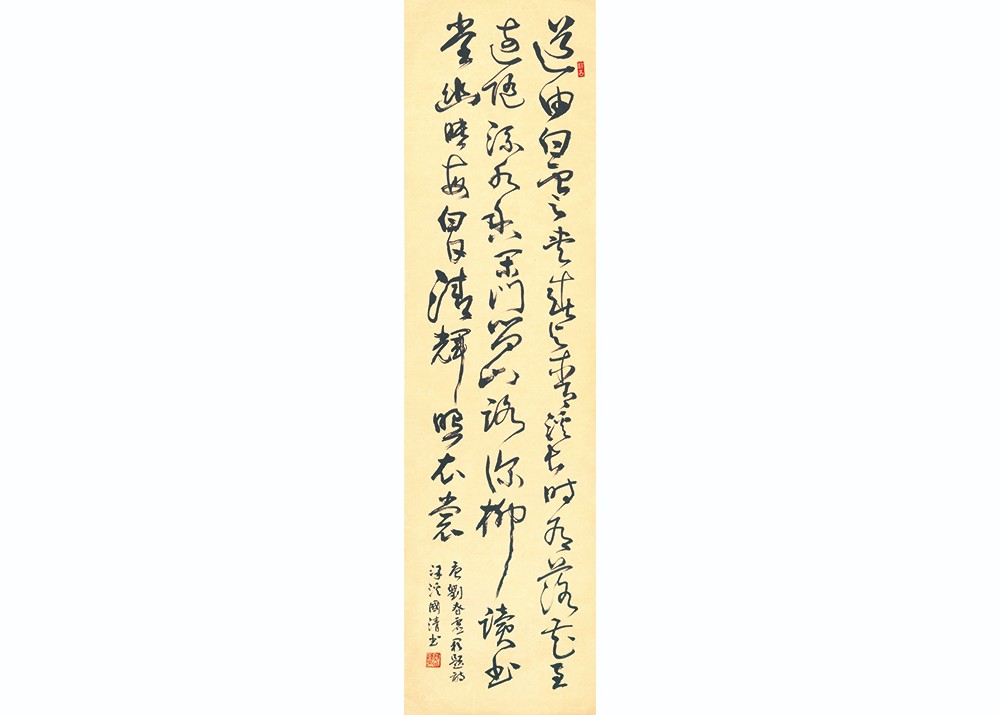 道由白雲盡春與青溪長時有落花至
遠隨流水香閑門向山路深柳讀書
堂幽映每白日清輝照衣裳
唐劉昚虛闕題詩
溪國清書